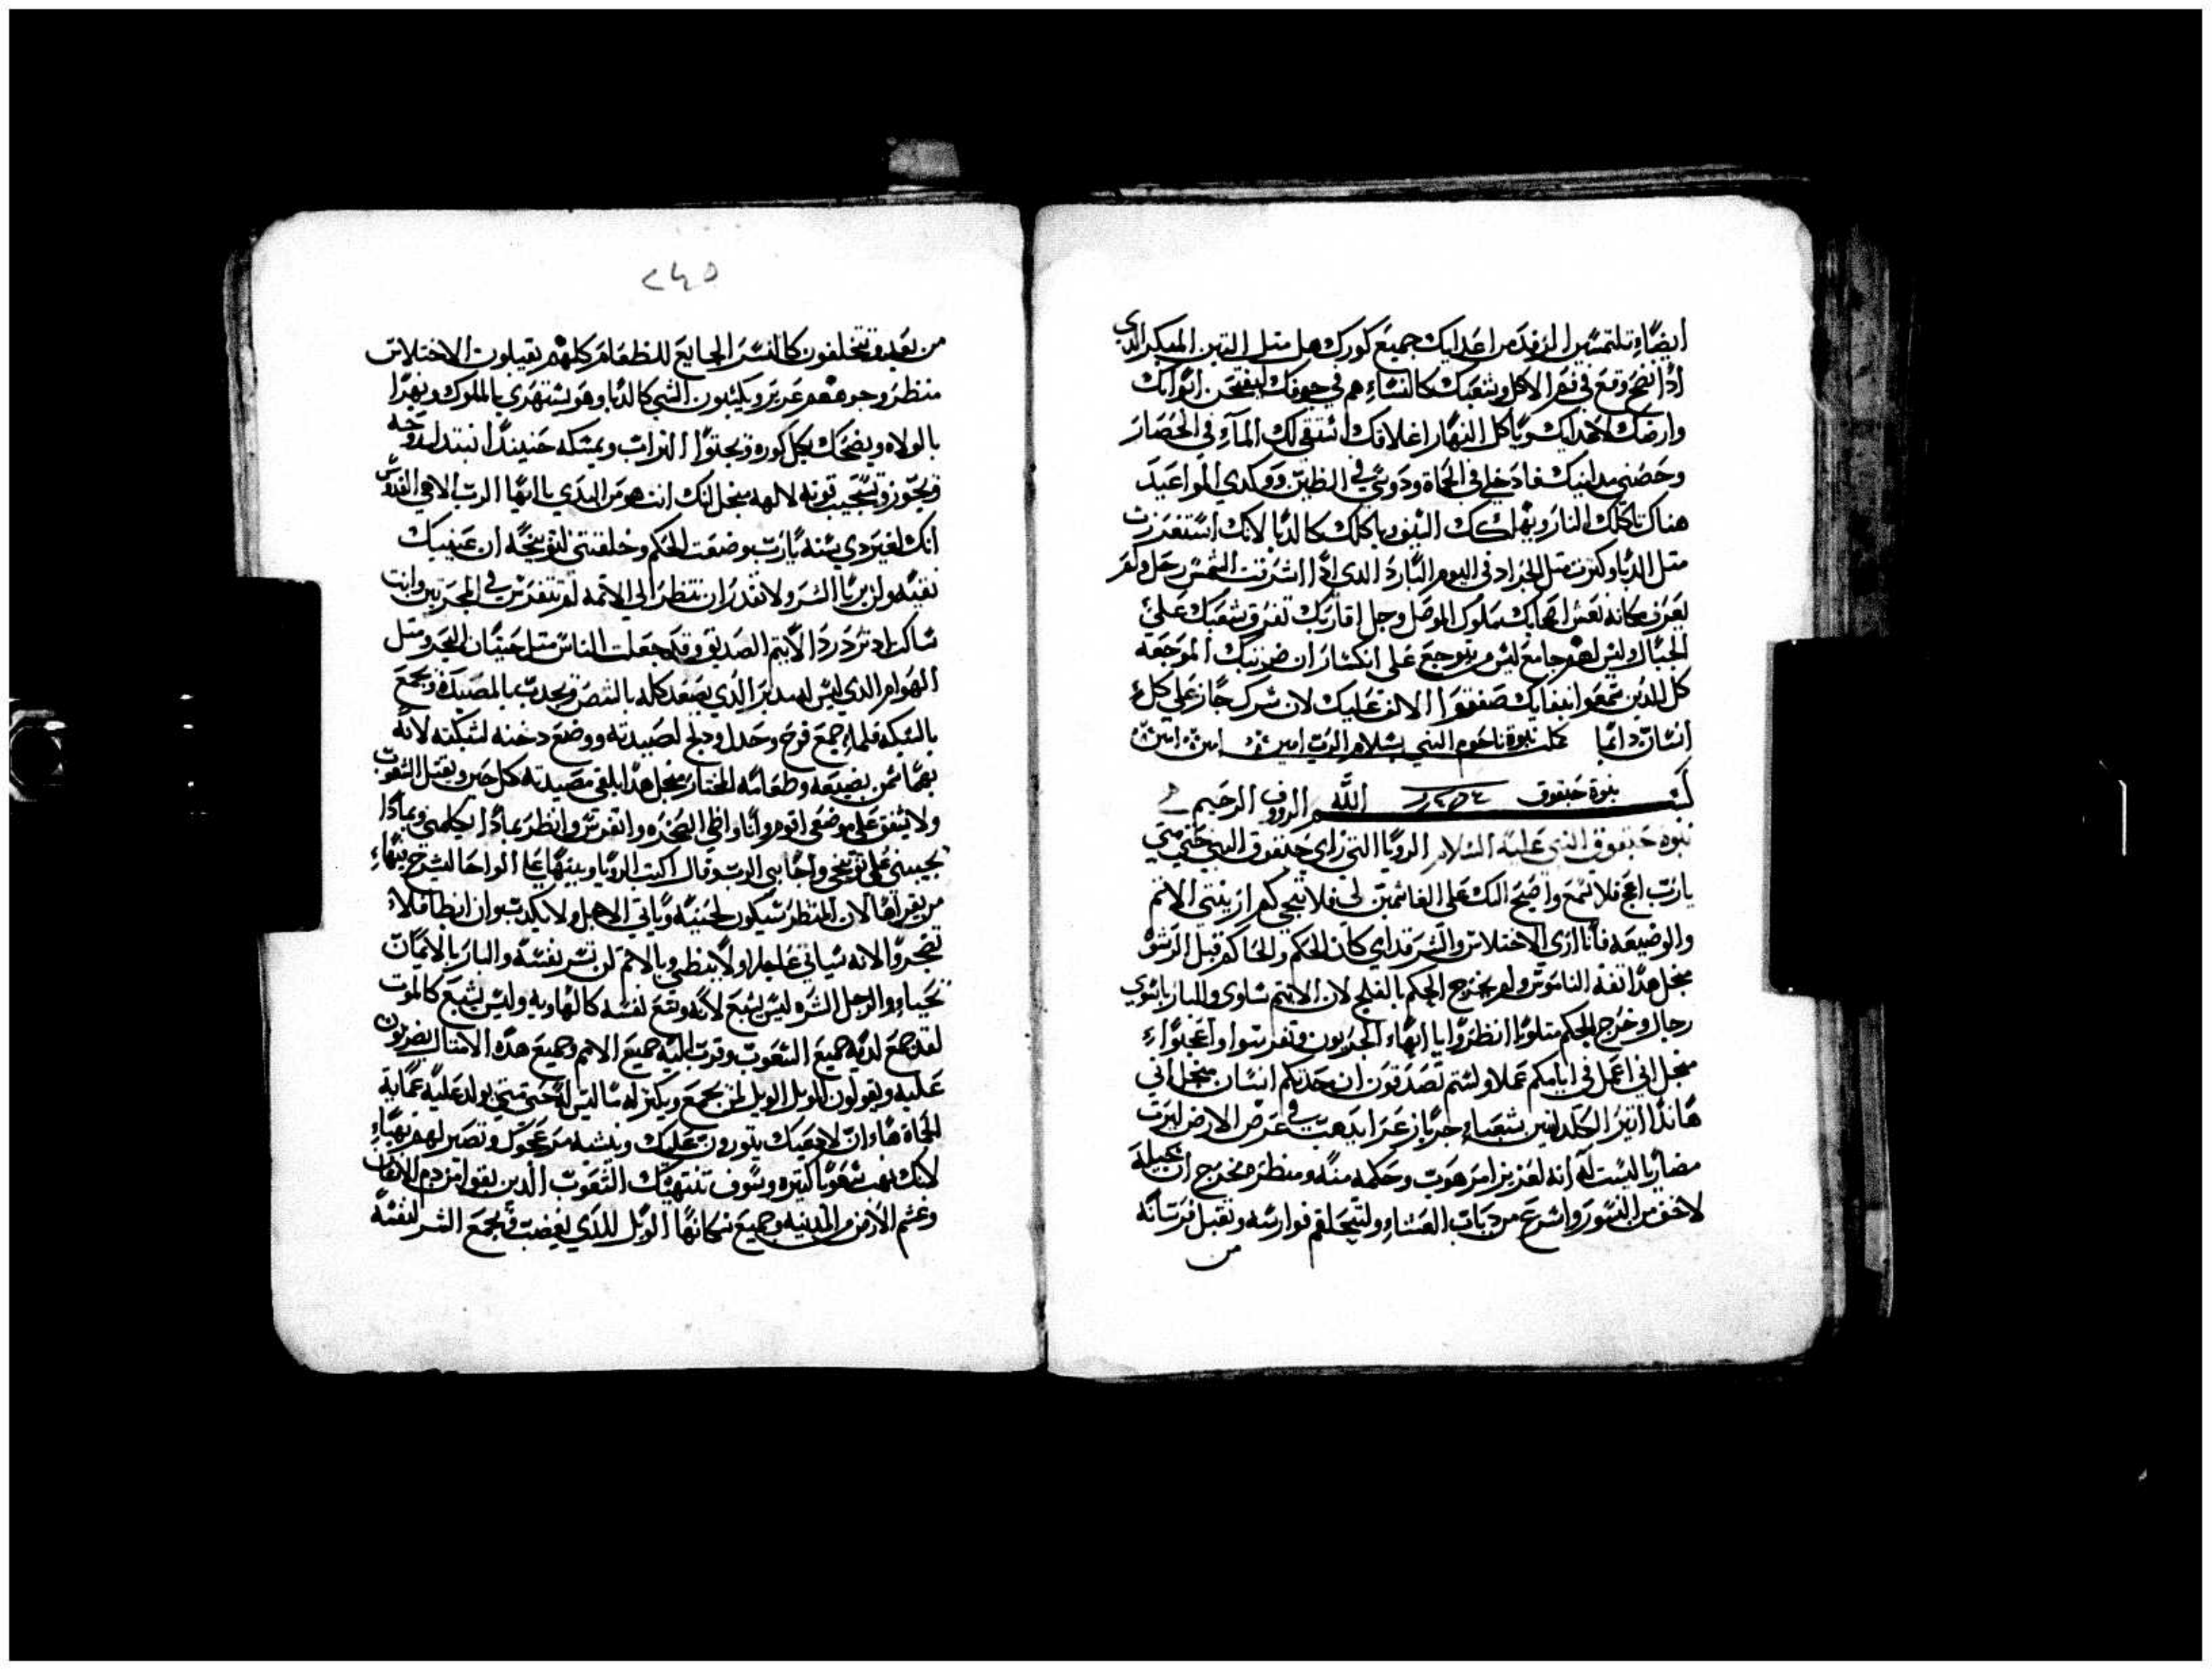 ايضاء تلتمسين الرفد من اعدايك جميع كورك هل متل التين المبكر الدي
ادا نضج وقع في فم الاكل وشعبك كالنساء هم في جوفك ليفتحن ابوابك
وارضك لاعدايك وياكل النهار اغلاقك استقي لك المآء في الحصار
وحصني مداينك فادخلي في الحماة ودوسي في الطين ووكدي المواعيد
هناك تاكلك النار ويهلكك السيف وياكلك كالدبا لانك استقدرت
متل الدبا وكترت متل الجراد في اليوم البارد الدي ادا اشرقت الشمس رحل ولم
يعرف مكانه نعس اصحابك ملوك الموصل وجل اقاربك تفرق شعبك على
الجبال وليس لهم جامع ليس من يتوجع على انكسارك ان ضربتك الموجعه
كل الدين سمعوا انبايك صفقوا الاكف عليك لان شرك جاز على كل
انسان دايما كملت نبوة ناحوم النبي بسلام الرب امين امين امين
نبوة حبقوق الله الرووف الرحيم
نبوة حبقوق النبي عليه السلام الرويا التي راي حبقوق النبي حتي متي
يارب اعج فلا تسمع واصيح اليك على الغاشمين لي فلا تنجي لم اريتني الاتم
والوضيعه فانا اري الاختلاس والشر قدامي كان الحكم والحاكم قبل الرشو
مجل هدا تفه الناموس ولم يخرج الحكم بالفلج لان الاتيم ساوي والبار
رجال وخرج الحكم متلوما انظروا يا ايهاء الجسورون وتفرسوا واعجبوا
منجل اني اعمل في ايامكم عملا ولستم تصدقون ان حدتكم انسان منجل اني
هاندا اتير الكلدانيين شعباء جربازعرا يدهب في عرض الارض ليرت
مضاربا ليست له انه لعزيز امرهوب وحكمه منه ومنظر مخرج ان خيله
لاخف من النسور واسرع من دياب العشاء ولتتحلق فوارسه وتقبل فرسانه
من
٢٤٥
من بعد وتتحلقون كالنسر الجايع للطعام كلهم يقبلون الاختلاس
منظر وجوههم عرير ويكبدون السبي كالدبا وهو يستهزي بالملوك ويهزا
بالولاه ويضحك بكل كوره ويحتوا التراب ويمسكه حينيد تتبدل روحه
ويجوز وتستجيب قوته لالهه منجل انك انت هو من البدي ياايها الرب الاهي القدوس
انك لغير دي سنه يارب وضعت الحكم وخلقتني لتوبيخه ان عينيك
نقيه ولن يريا الشر ولا تقدر ان تنظر الي الاتمه لم تتفرس في المجربين وانت
ساكت ادتزدرد الاتيم الصديق وقد جعلت الناس متل حيتان البحر ومتل
الهوام الدي ليس له مدبر الدي يصعد كله بالشص ويجدب بالمصيده ويجمع
بالشبكه فلماء جمع فرح وجدل ودبح لصيدته ووضع دخنه لشبكته لانه
بهما سمن بضيعه وطعامه المختار منجل هدا يلقي مصيدته كل حين ويقتل الشعوب
ولا يشفق على موضعي اقوم وانا واطي الصخره واتفرس وانظر بمادا يكلمني وبمادا
يجيبني على توبيخي واجابني الرب وقال اكتب الرويا وبينها علي الواح السرج بيهاء
من يقراها لان المنظر سيكون لحينه وياتي الاجل ولا يكدب وان ابطا فلا
تضجروا لانه سياتي عاجلا ولا يبطي وبالاتم لن تسر نفسه والبار بالايمان
يحياء والرجل الشره ليس يشبع لانه وسع نفسه كالهاويه وليس يشبع كالموت
لقد جمع لديه جميع الشعوب وقرب اليه جميع الامم وجميع هده الامتال يضربون
عليه ويقولون الويل الويل لمن يجمع ويكنز له ما ليس له حتي متي يولد عليه غمامة
الحماة هاء ان لادعيك يتورون عليك وينشبه من عجول وتصير لهم نهباء
لانك نهبت شعوبا كتيره وسوف تنتهبك الشعوب الدين بقوا من دم الانسان
وغشم الارض والمدينه وجميع سكانها الويل للدي يغضب ويجمع الشر لنفسه